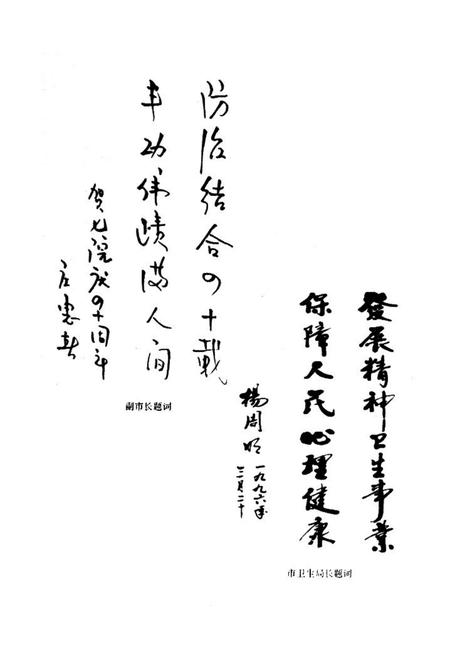 防治结合四十載
丰功伟蹟满人间
贺七院庆四十周年
副市长题词
發展精神卫生事業
保障人民心理健康
楊周明
一九九六年
三月二十
市卫生局长题词